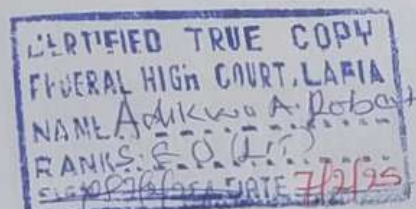 CERTIFIED TRUE COPY
FEDERAL HIGH COURT, LAFIA
NAME Adikwu A. Robert
RANK S.E.O (Lit)
DATE 7/2/25